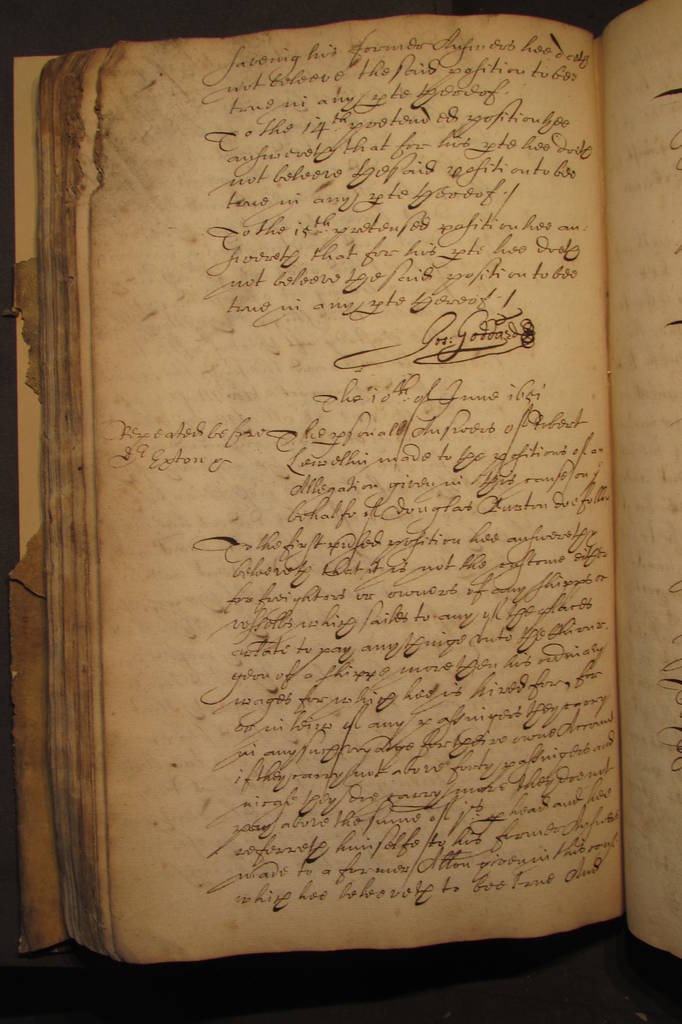 saveing his former Answers hee doeth
not beleeve the said position to bee
true in any pte thereof.
To the 14th pretended position hee
answereth that for his pte hee doeth
not beleeve the said position to bee
true in any pte thereof./
To the 15th pretensed position hee an:
swereth that for his pte hee doeth
not beleeve the said position to bee
true in any pte thereof./
Jos: Goddard
The 10th of June 1651
Repeated before
Dr Exton
The psonall Answers of Robert
Lewellin made to the positions of an
Allegation given in this cause on
behalfe of Douglas Burton doe follow
To the first position hee answereth
beleeveth that it is not the custome either
for freighters or owners of any shipps or
vessells which sailes to any of the places
arlate to pay any thinge unto the Chirur:
geon of a shippe more then his ordinary
wages for which hee is hired for, for
or in leiw of any passingers they carry
in any such voyage for theire owne Account
if they carry not above forty passingers and
they doe carry more they doe not
pay above the summe of p head and hee
referreth himselfe to his former Answers
made to a former Allon given in this cause
which hee beleeveth to bee true And